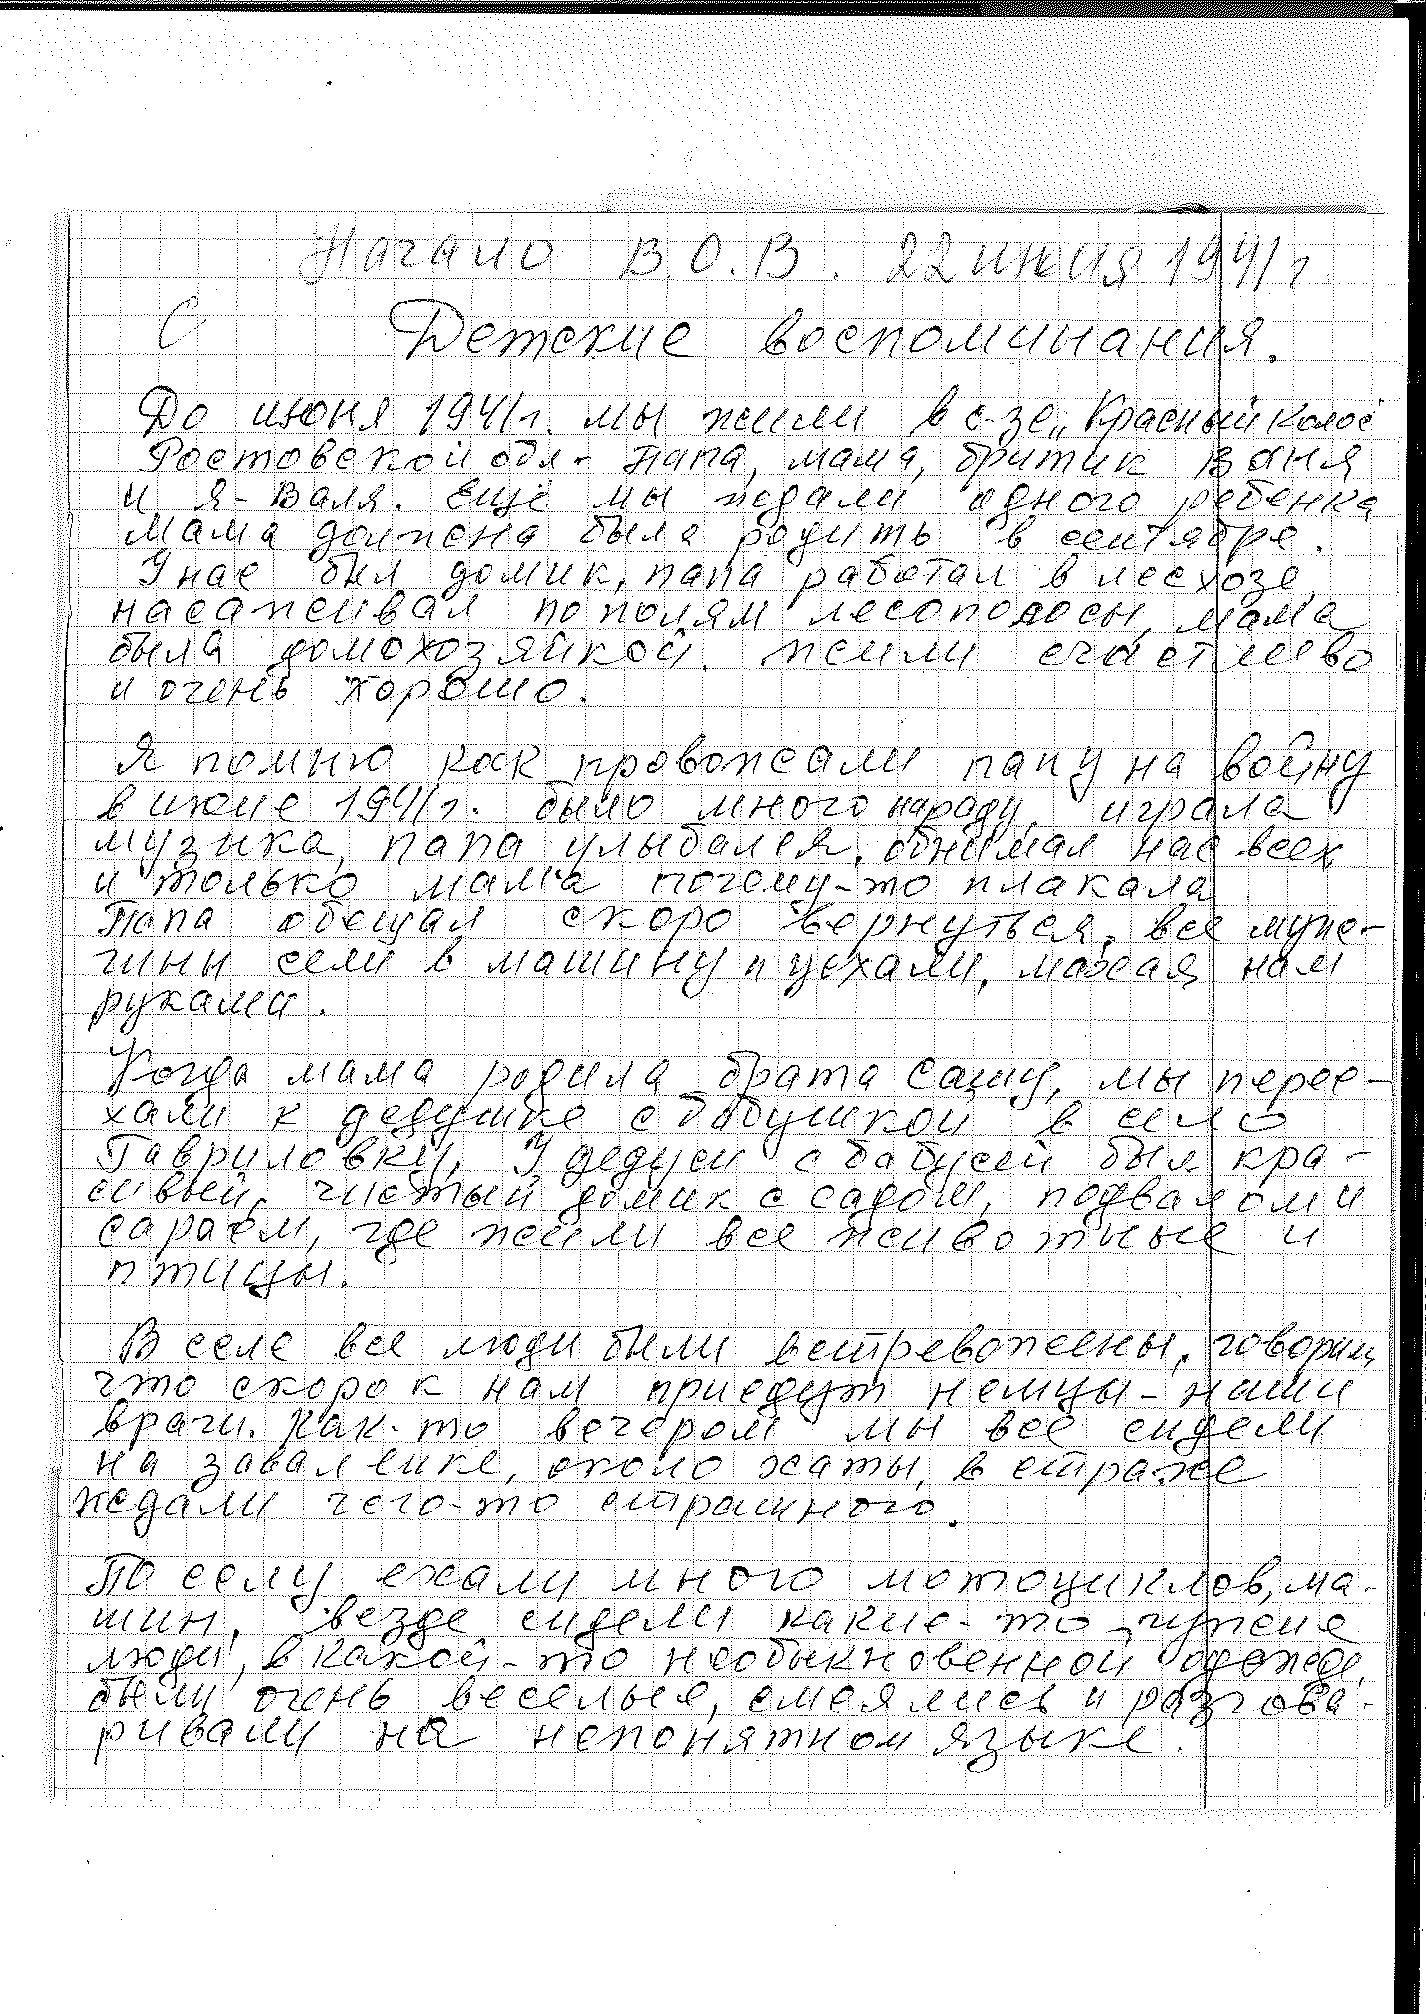 Начало В.О.В. 22 июня 1941 г
С Детские воспоминания.
До июня 1941г. мы жили в с-зе „Красный Колос"
Ростовской обл- папа, мама, братик Ваня
и я- Валя. Ещё мы ждали одного ребенка
мама должна была родить в сентябре.
У нас был домик, папа работал в лесхозе,
насаживал по полям лесополосы, мама
была домохозяйкой. жили счастливо
и очень хорошо.
Я помню как провожали папу на войну
в июле 1941г. было много народу, играла
музыка, папа улыбался, обнимал нас всех
и только мама почему-то плакала
Папа обещал скоро вернуться, все муж-
чины сели в машину и уехали, махая нам
руками.
Когда мама родила брата Сашу, мы перее-
хали к дедушке с бабушкой в село
Гавриловку, У дедуси с бабусей был кра-
сивый, чистый домик с садом, подвалом и
сараем, где жили все животные и
птицы.
В селе все люди были встревожены, говорили
что скоро к нам приедут немцы- наши
враги. Как-то вечером мы все сидели
на завалинке, около хаты, в страхе
ждали чего-то страшного.
По селу ехали много мотоциклов, ма-
шин, везде сидели какие-то чужие
люди, в какой-то необыкновенной одежде,
были очень веселые, смеялись и разгова-
ривали на непонятном языке.